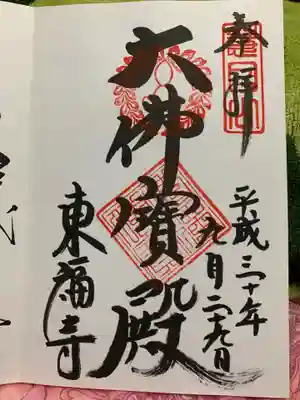 奉拝
平成三十年九月二十九日
大佛寳殿
東福寺